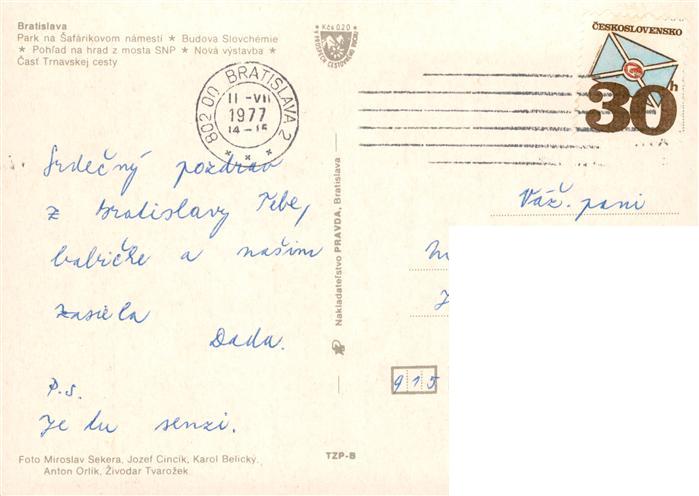 Bratislava
Park na Šafárikovom námestí ★ Budova Slovchémie
★ Pohľad na hrad z mosta SNP ★ Nová výstavba ★
Časť Trnavskej cesty
Kčs 0,20
V PROSPECH CESTOVNÉHO RUCHU
ČESKOSLOVENSKO
30h
802 00 BRATISLAVA 2
11-VII
1977
14-15
Srdečný pozdrav
z Bratislavy Tebe,
babičke a našim
zasiela
Dada.
P.s.
Je tu senzi.
Váž. pani
915
Nakladateľstvo PRAVDA, Bratislava
Foto Miroslav Sekera, Jozef Cincík, Karol Belický,
Anton Orlík, Živodar Tvarožek
TZP-B